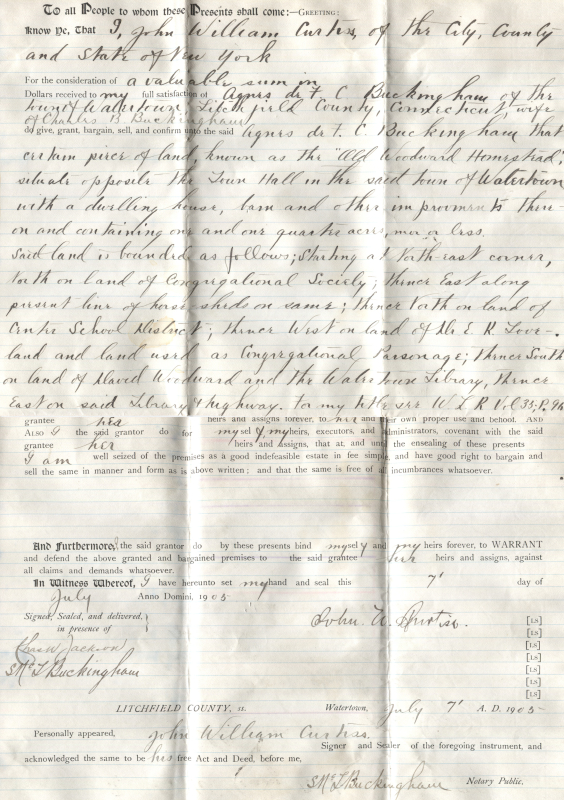 To all People to whom these Presents shall come:—GREETING:
Know Ye, That I, John William Curtiss, of the City, County
and State of New York
For the consideration of a valuable sum in
Dollars received to my full satisfaction of Agnes de F. C. Buckingham of the
town of Watertown, Litchfield County, Connecticut, wife
of Charles B. Buckingham
do give, grant, bargain, sell, and confirm unto the said Agnes de F. C. Buckingham that
certain piece of land, known as the "Old Woodward Homestead",
situate opposite the Town Hall in the said town of Watertown
with a dwelling house, barn and other improvments there-
on and containing one and one quarter acres, mor or less.
Said land is bounded as follows; Starting at North-east corner,
North on land of Congregational Society; thence East along
present line of horse sheds on same; thence North on land of
Center School District; thence West on land of Mr E. R. Love-
land and land used as Congregational Parsonage; thence South
on land of David Woodward and the Watertown Library, thence
East on said Library & highway. for my title see W L R Vol 35, P. 96
grantee her heirs and assigns forever, to her and their own proper use and behoof. AND
ALSO I the said grantor do for myself & my heirs, executors, and administrators, covenant with the said
grantee her heirs and assigns, that at, and until the ensealing of these presents
I am well seized of the premises as a good indefeasible estate in fee simple, and have good right to bargain and
sell the same in manner and form as is above written; and that the same is free of all incumbrances whatsoever.
And Furthermore, I the said grantor do by these presents bind myself and my heirs forever, to WARRANT
and defend the above granted and bargained premises to the said grantee her heirs and assigns, against
all claims and demands whatsoever.
In Witness Whereof, I have hereunto set my hand and seal this 7' day of
July Anno Domini, 1905
Signed, Sealed, and delivered,
in presence of
John W. Curtiss. [LS]
[LS]
[LS]
Jackson [LS]
S McL Buckingham [LS]
[LS]
[LS]
LITCHFIELD COUNTY, ss. Watertown, July 7' A. D. 1905
Personally appeared, John William Curtiss.
Signer and Sealer of the foregoing instrument, and
acknowledged the same to be his free Act and Deed, before me,
S McL Buckingham Notary Public.